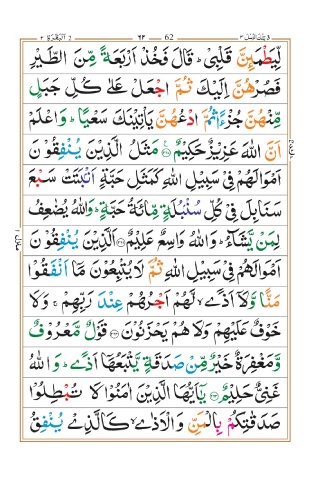 تِلْكَ الرُّسُلُ ٣ ٦٢ 62 اَلْبَقَرَة ٢
لِّيَطْمَئِنَّ قَلْبِىْ ؕ قَالَ فَخُذْ اَرْبَعَةً مِّنَ الطَّيْرِ
فَصُرْهُنَّ اِلَيْكَ ثُمَّ اجْعَلْ عَلٰى كُلِّ جَبَلٍ
مِّنْهُنَّ جُزْءًا ثُمَّ ادْعُهُنَّ يَاْتِيْنَكَ سَعْيًا ؕ وَاعْلَمْ
اَنَّ اللّٰهَ عَزِيْزٌ حَكِيْمٌ ﴿۲۶۰﴾ مَثَلُ الَّذِيْنَ يُنْفِقُوْنَ
اَمْوَالَهُمْ فِىْ سَبِيْلِ اللّٰهِ كَمَثَلِ حَبَّةٍ اَنْۢبَتَتْ سَبْعَ
سَنَابِلَ فِىْ كُلِّ سُنْۢبُلَةٍ مِّائَةُ حَبَّةٍ ؕ وَاللّٰهُ يُضٰعِفُ
لِمَنْ يَّشَآءُ ؕ وَاللّٰهُ وَاسِعٌ عَلِيْمٌ ﴿۲۶۱﴾ اَلَّذِيْنَ يُنْفِقُوْنَ
اَمْوَالَهُمْ فِىْ سَبِيْلِ اللّٰهِ ثُمَّ لَا يُتْبِعُوْنَ مَاۤ اَنْفَقُوْا
مَنًّا وَّلَاۤ اَذًى ۙ لَّهُمْ اَجْرُهُمْ عِنْدَ رَبِّهِمْ ۚ وَلَا
خَوْفٌ عَلَيْهِمْ وَلَا هُمْ يَحْزَنُوْنَ ﴿۲۶۲﴾ قَوْلٌ مَّعْرُوْفٌ
وَّمَغْفِرَةٌ خَيْرٌ مِّنْ صَدَقَةٍ يَّتْبَعُهَاۤ اَذًى ؕ وَاللّٰهُ
غَنِىٌّ حَلِيْمٌ ﴿۲۶۳﴾ يٰۤاَيُّهَا الَّذِيْنَ اٰمَنُوْا لَا تُبْطِلُوْا
صَدَقٰتِكُمْ بِالْمَنِّ وَالْاَذٰى ۙ كَالَّذِىْ يُنْفِقُ